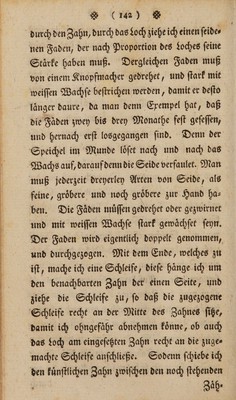 ( 142 )
durch den Zahn, durch das Loch ziehe ich einen seide-
nen Faden, der nach Proportion des Loches seine
Stärke haben muß. Dergleichen Faden muß
von einem Knopfmacher gedrehet, und stark mit
weissen Wachse bestrichen werden, damit er desto
länger daure, da man denn Exempel hat, daß
die Fäden zwey bis drey Monathe fest gesessen,
und hernach erst losgegangen sind. Denn der
Speichel im Munde löset nach und nach das
Wachs auf, darauf denn die Seide verfaulet. Man
muß jederzeit dreyerley Arten von Seide, als
feine, gröbere und noch gröbere zur Hand ha-
ben. Die Fäden müssen gedrehet oder gezwirnet
und mit weissen Wachse stark gewächset seyn.
Der Faden wird eigentlich doppelt genommen,
und durchgezogen. Mit dem Ende, welches zu
ist, mache ich eine Schleife, diese hänge ich um
den benachbarten Zahn der einen Seite, und
ziehe die Schleife zu, so daß die zugezogene
Schleife recht an der Mitte des Zahnes sitze,
damit ich ohngefähr abnehmen könne, ob auch
das Loch am eingesetzten Zahn recht an die zuge-
machte Schleife anschließe. Sodenn schiebe ich
den künstlichen Zahn zwischen den noch stehenden
Zäh-